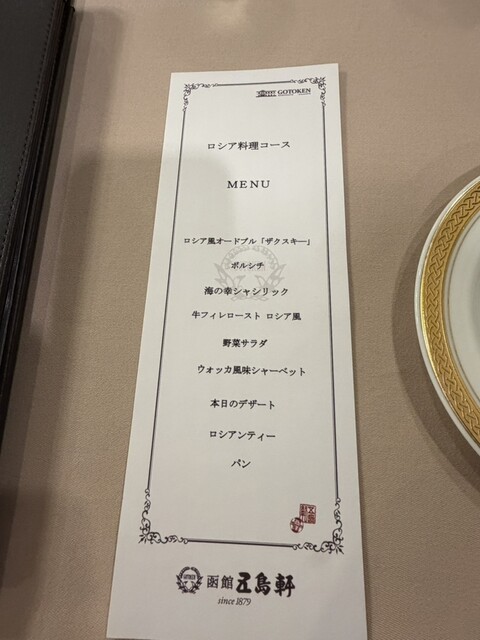 GOTOKEN
ロシア料理コース
MENU
ロシア風オードブル「ザクスキー」
ボルシチ
海の幸シャシリック
牛フィレロースト ロシア風
野菜サラダ
ウォッカ風味シャーベット
本日のデザート
ロシアンティー
パン
函館 五島軒
since 1879